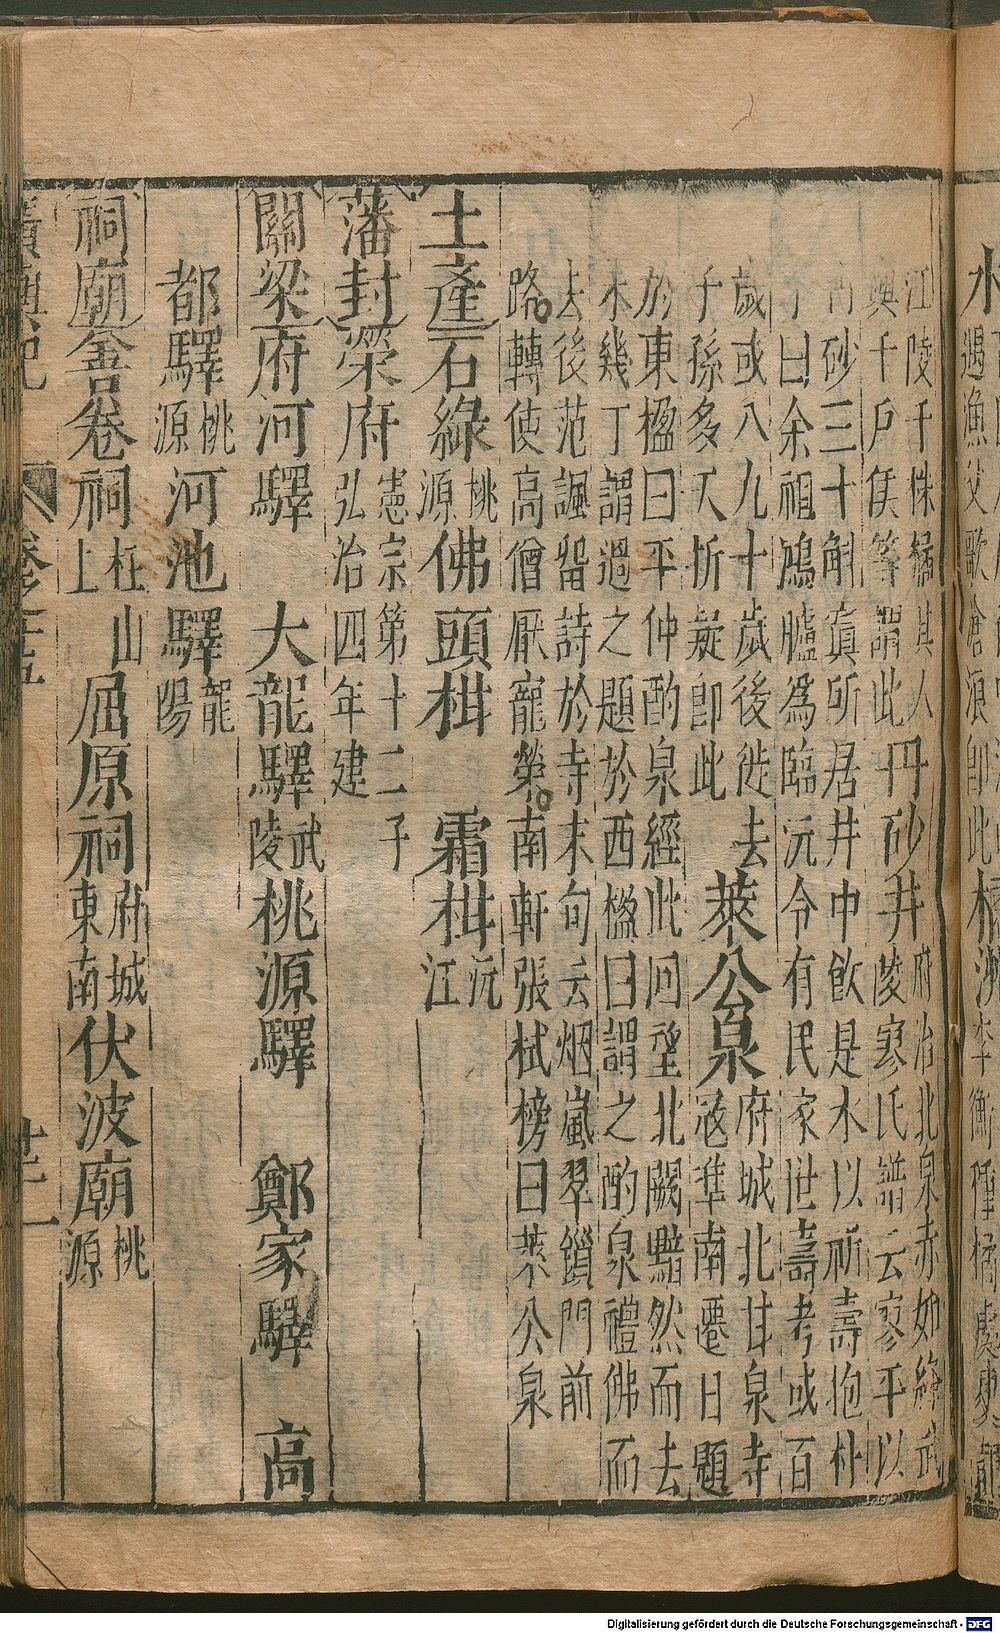 江陵千株橘其人
與千戶侯等謂此丹砂井府治北泉赤如絳武
陵寥氏譜云寥平以
丹砂三十斛窴所居井中飲是水以祈壽抱朴
子曰余祖鴻臚為臨沅令有民家世壽考或百
歲或八九十歲後徙去
子孫多夭折疑即此萊公泉府城北甘泉寺
寇準南遷日題
於東楹曰平仲酌泉經此回望北闕黯然而去
未幾丁謂過之題於西楹曰謂之酌泉禮佛而
去後范諷留詩於寺末句云烟嵐翠鎖門前
路轉使高僧厭寵榮南軒張栻榜曰萊公泉
土產石綠桃源佛頭柑 霜柑沅江
藩封榮府憲宗第十二子
弘治四年建
關梁府河驛 大龍驛武陵桃源驛 鄭家驛 高
都驛桃源河池驛龍陽
祠廟善卷祠枉山上屈原祠府城東南伏波廟桃源
廣輿記 卷之十五 廿一
Digitalisierung gefördert durch die Deutsche Forschungsgemeinschaft - DFG